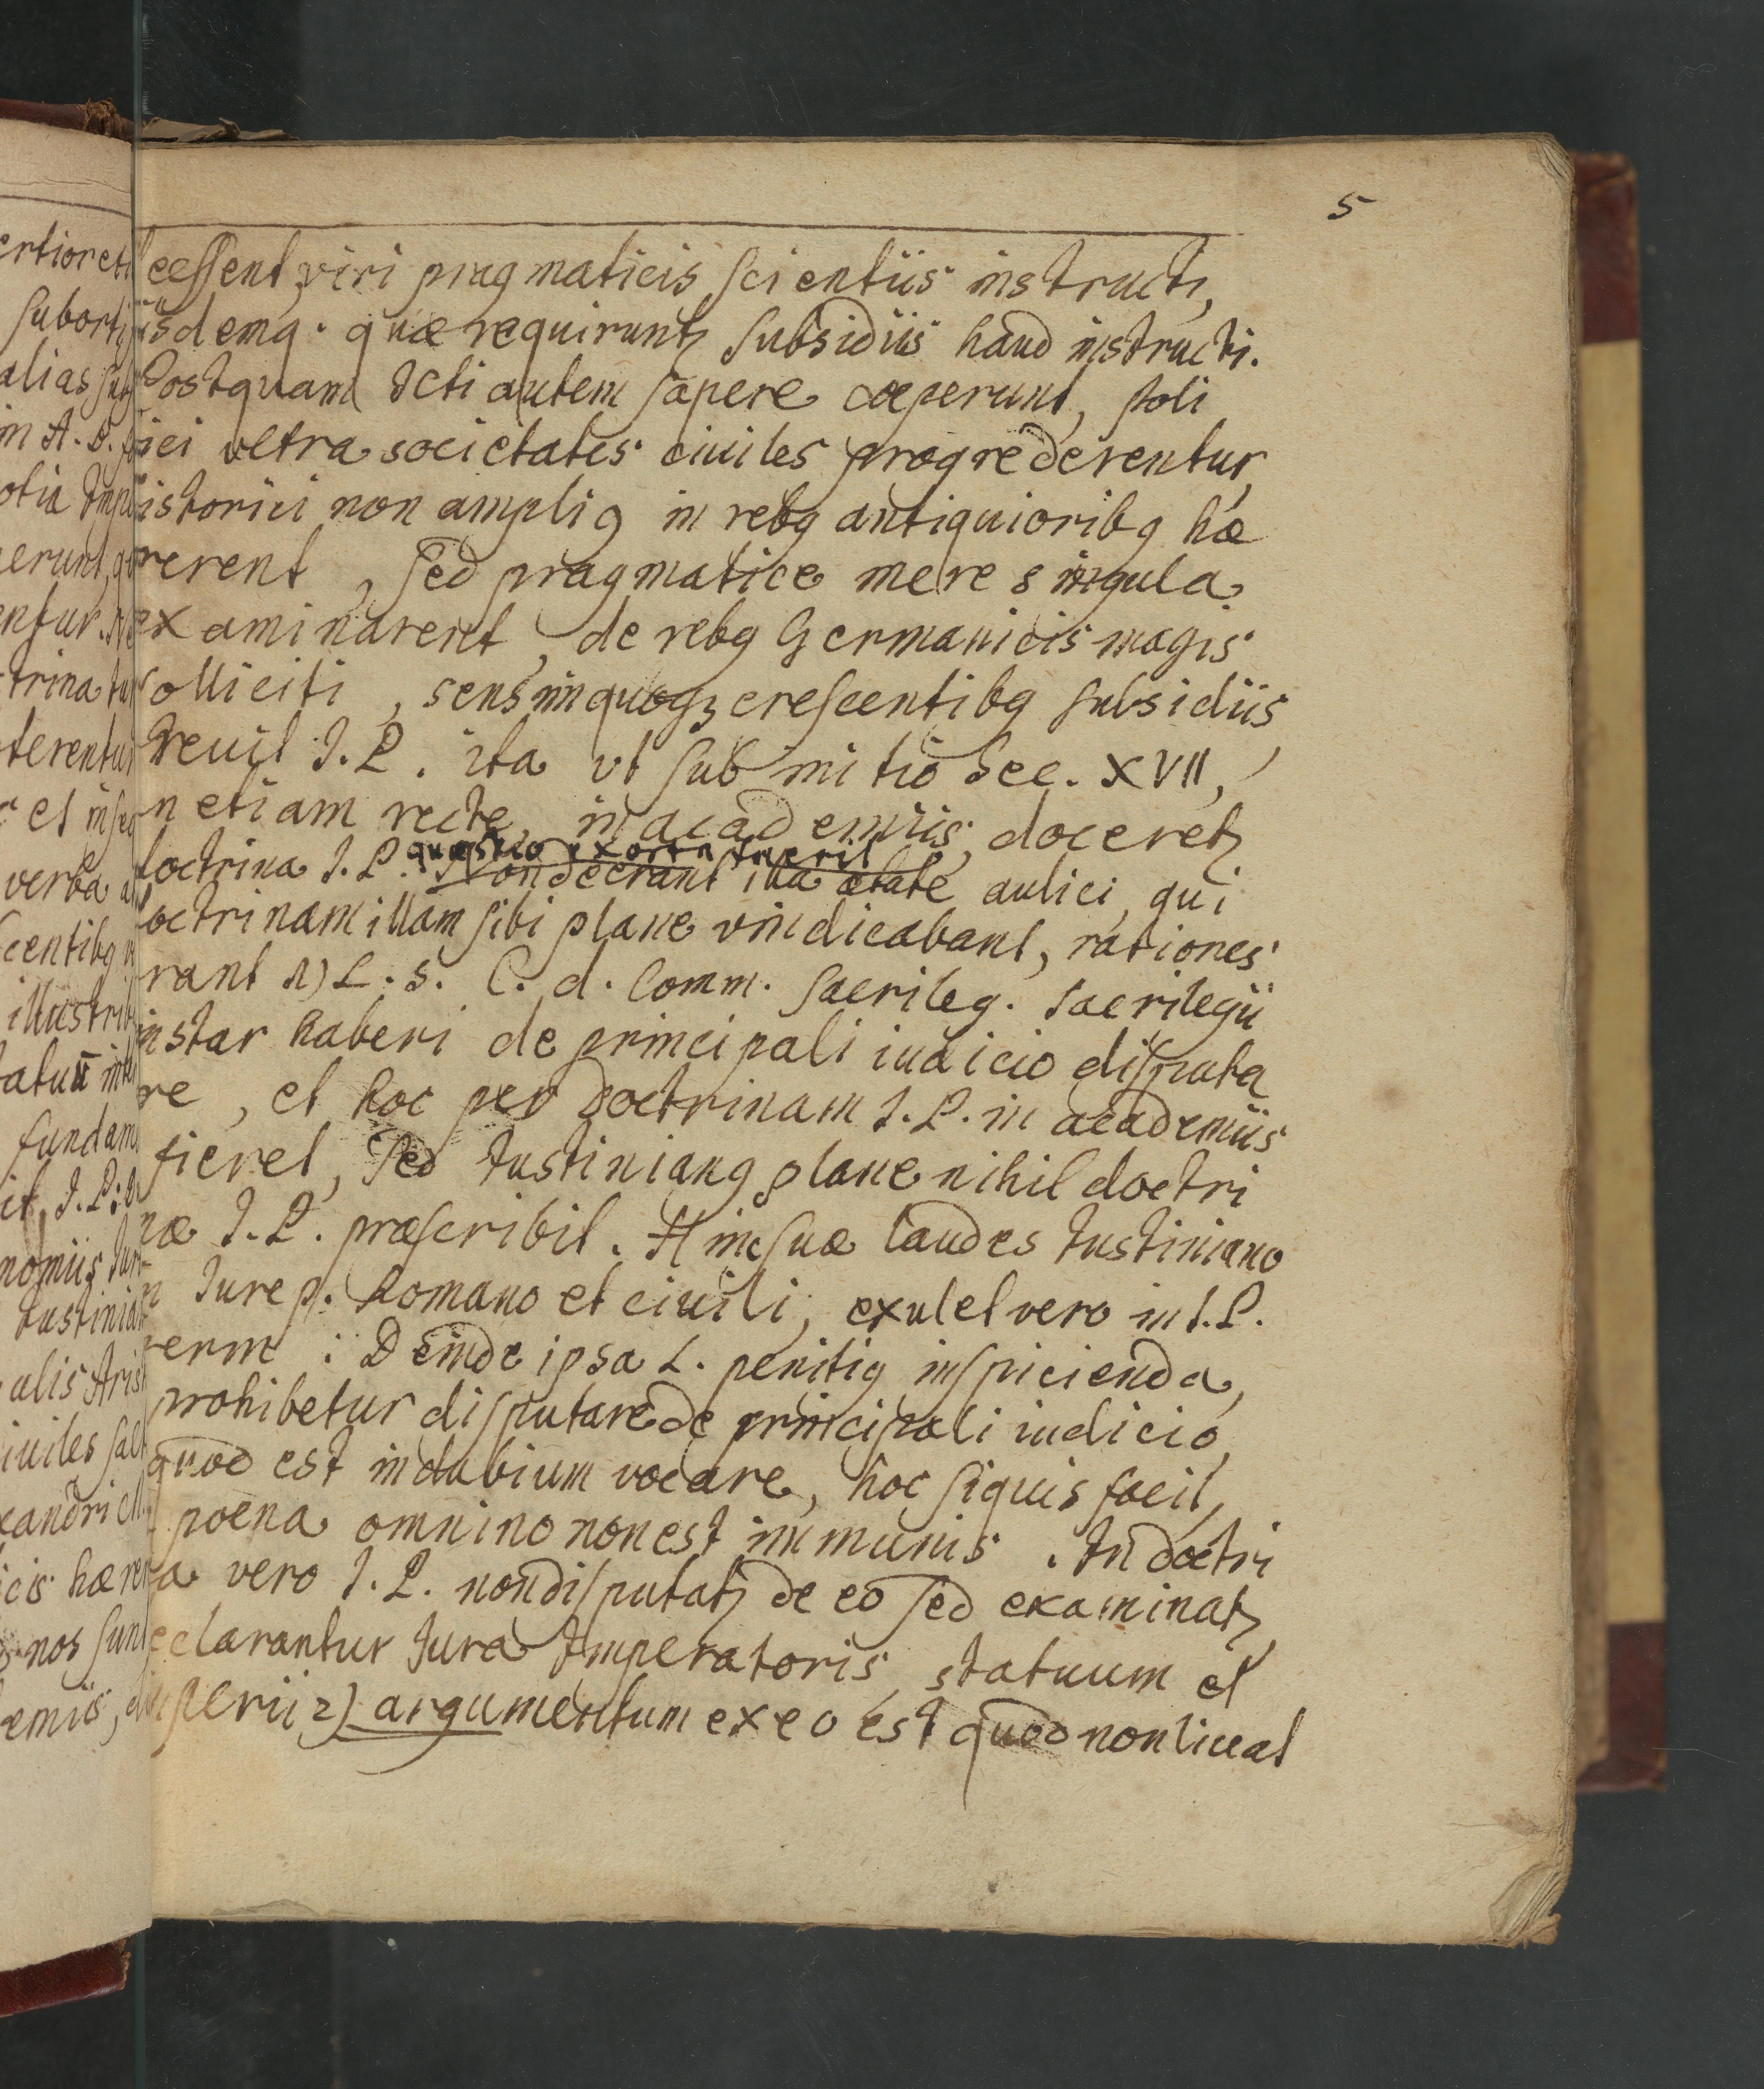 5
eessent viri pragmaticis scientiis instructi,
isdemq. quæ requirunt subsidiis haud instructi.
Postquam Icti autem sapere cœperunt, poli
ici vltra societates ciuiles progrederentur,
istorici non ampli9 in reb9 antiquiorib9 hæ
rerent, sed pragmatice mere singula
examinarent, de reb9 Germanicis magis
solliciti, sensimquoqz crescentib9 subsidiis
creuit I. P. ita vt sub initio Sec. XVII,
n etiam recte in academiis doceretr
quæstio exorta fuerit
doctrina I. P. Non deerant illa ætate aulici, qui
octrinam illam sibi plane vindicabant, rationes
rant 1) L. s. C. d. Comm. Sacrileg. sacrilegii
instar haberi de principali iudicio disputa
re, et hoc per doctrinam I. P. in academiis
fieret, sed Iustinian9 plane nihil doctri
næ I. P. præscribit. Hinc suæ laudes Iustiniano
n Iure p. Romano et ciuili, exulet vero in I. P.
erm: Deinde ipsa L. peniti9 inspicienda,
prohibetur disputare de principali iudicio,
quod est in dubium vocare, hoc siquis facit,
poena omnino non est immunis. In doctri
a vero I. P. non disputatr de eo sed examinatr
eclarantur Iura Imperatoris, statuum et
mperii 2) argumentum ex eo est quod non liceat